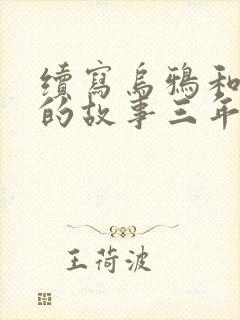 續寫烏鴉和
的故事三年
王荷波